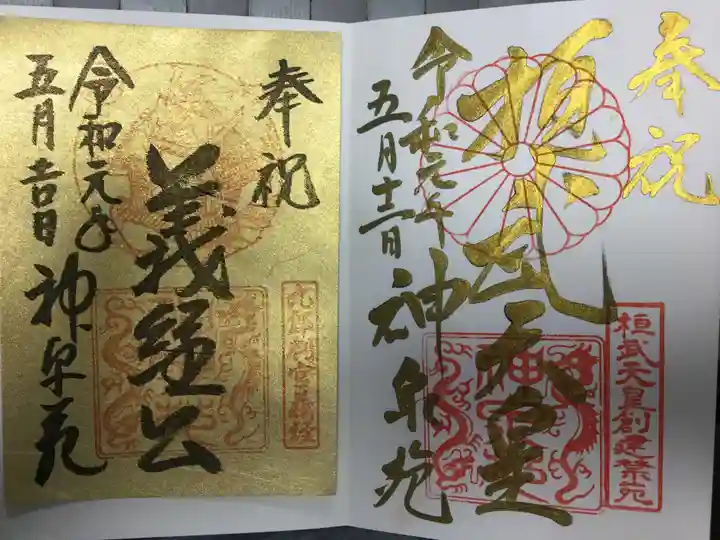 奉祝
桓武天皇
桓武天皇創建禁苑
令和元年
五月十二日
神泉苑
奉祝
義経公
九郎判官義経
令和元年
五月吉日
神泉苑